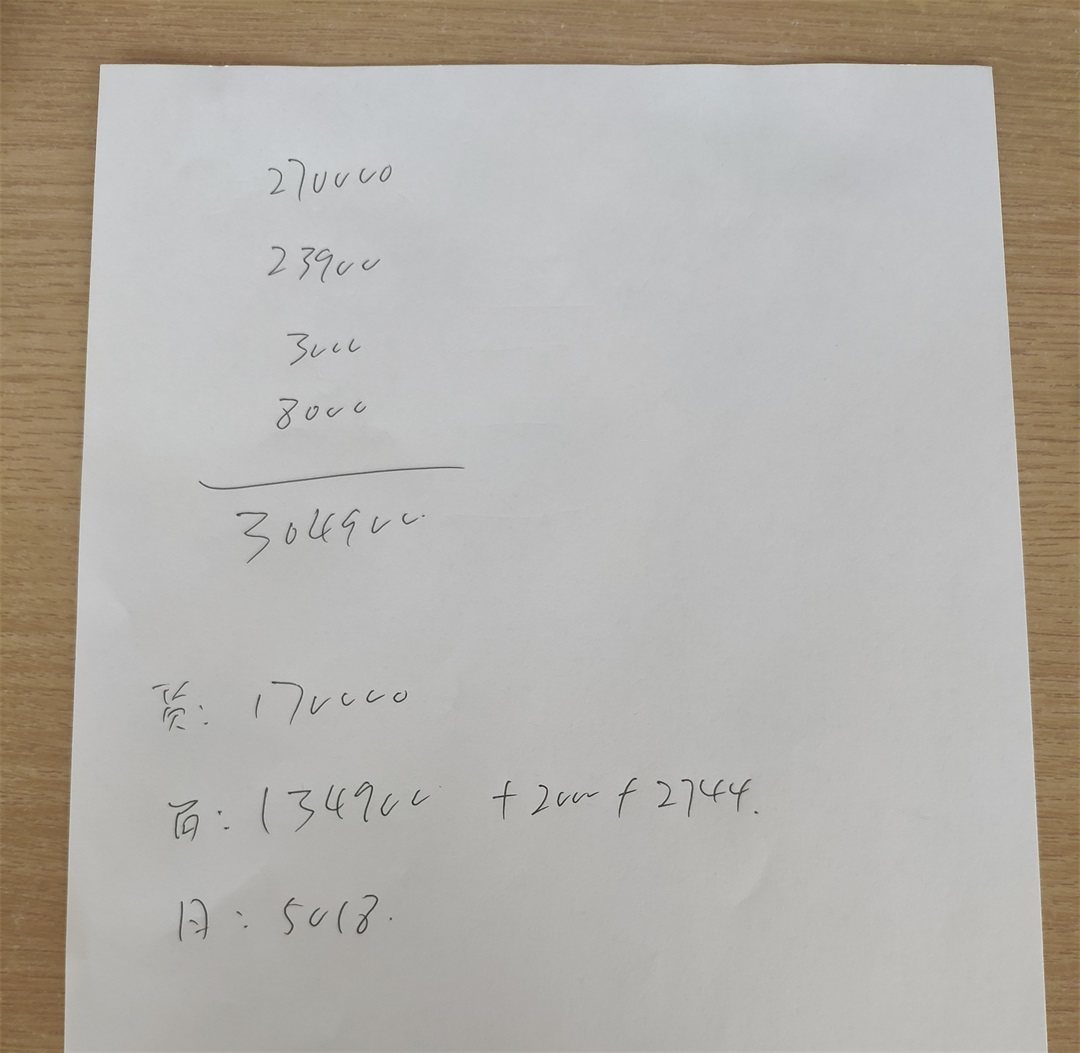 270000
23900
3000
8000
304900
贷: 170000
首: 134900 + 2000 + 2744.
月: 5018.